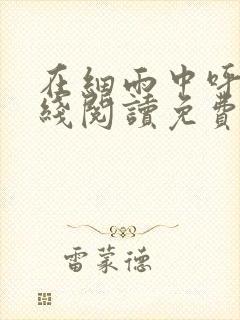 在細雨中呼
綫閱讀免費
雷蒙德